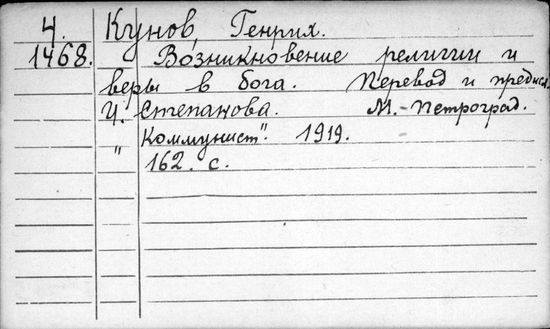 4. Кунов, Генрих.
1468. Возникновение религии и
веры в бога. Перевод и предисл.
И. Степанова. М.-Петроград.
"Коммунист". 1919.
162. с.